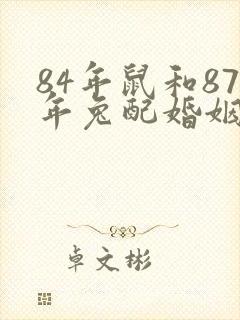 84年鼠和87
年兔配婚姻
卓文彬